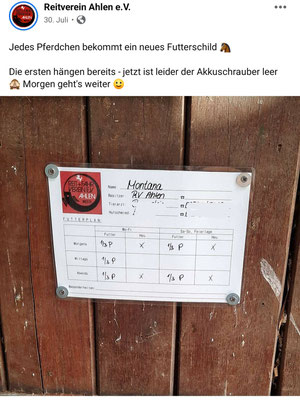 Reitverein Ahlen e.V.
30. Juli
Jedes Pferdchen bekommt ein neues Futterschild 🐴
Die ersten hängen bereits - jetzt ist leider der Akkuschrauber leer
🙈 Morgen geht's weiter 😀
AHLEN
Name Montana
Besitzer RV Ahlen
FUTTERPLAN
Mo-Fr. Sa-So, Feiertage
Futter Heu Futter Heu
Morgens ½ P X ½ P X
Mittags ½ P
Abends ½ P X ½ P X